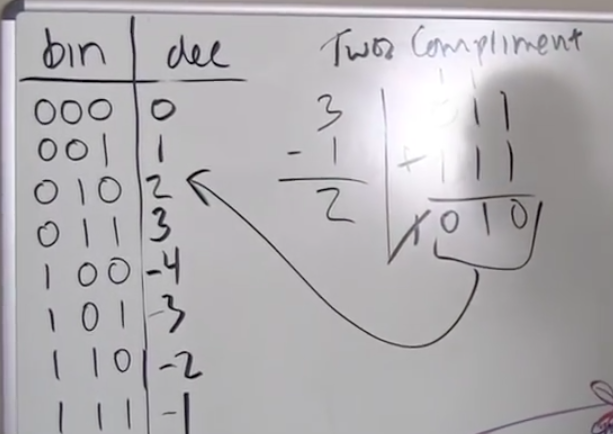 bin dec
000 0
001 1
010 2
011 3
100 -4
101 -3
110 -2
111 -1
Twos Compliment
3
- 1
2
11
011
+111
1010